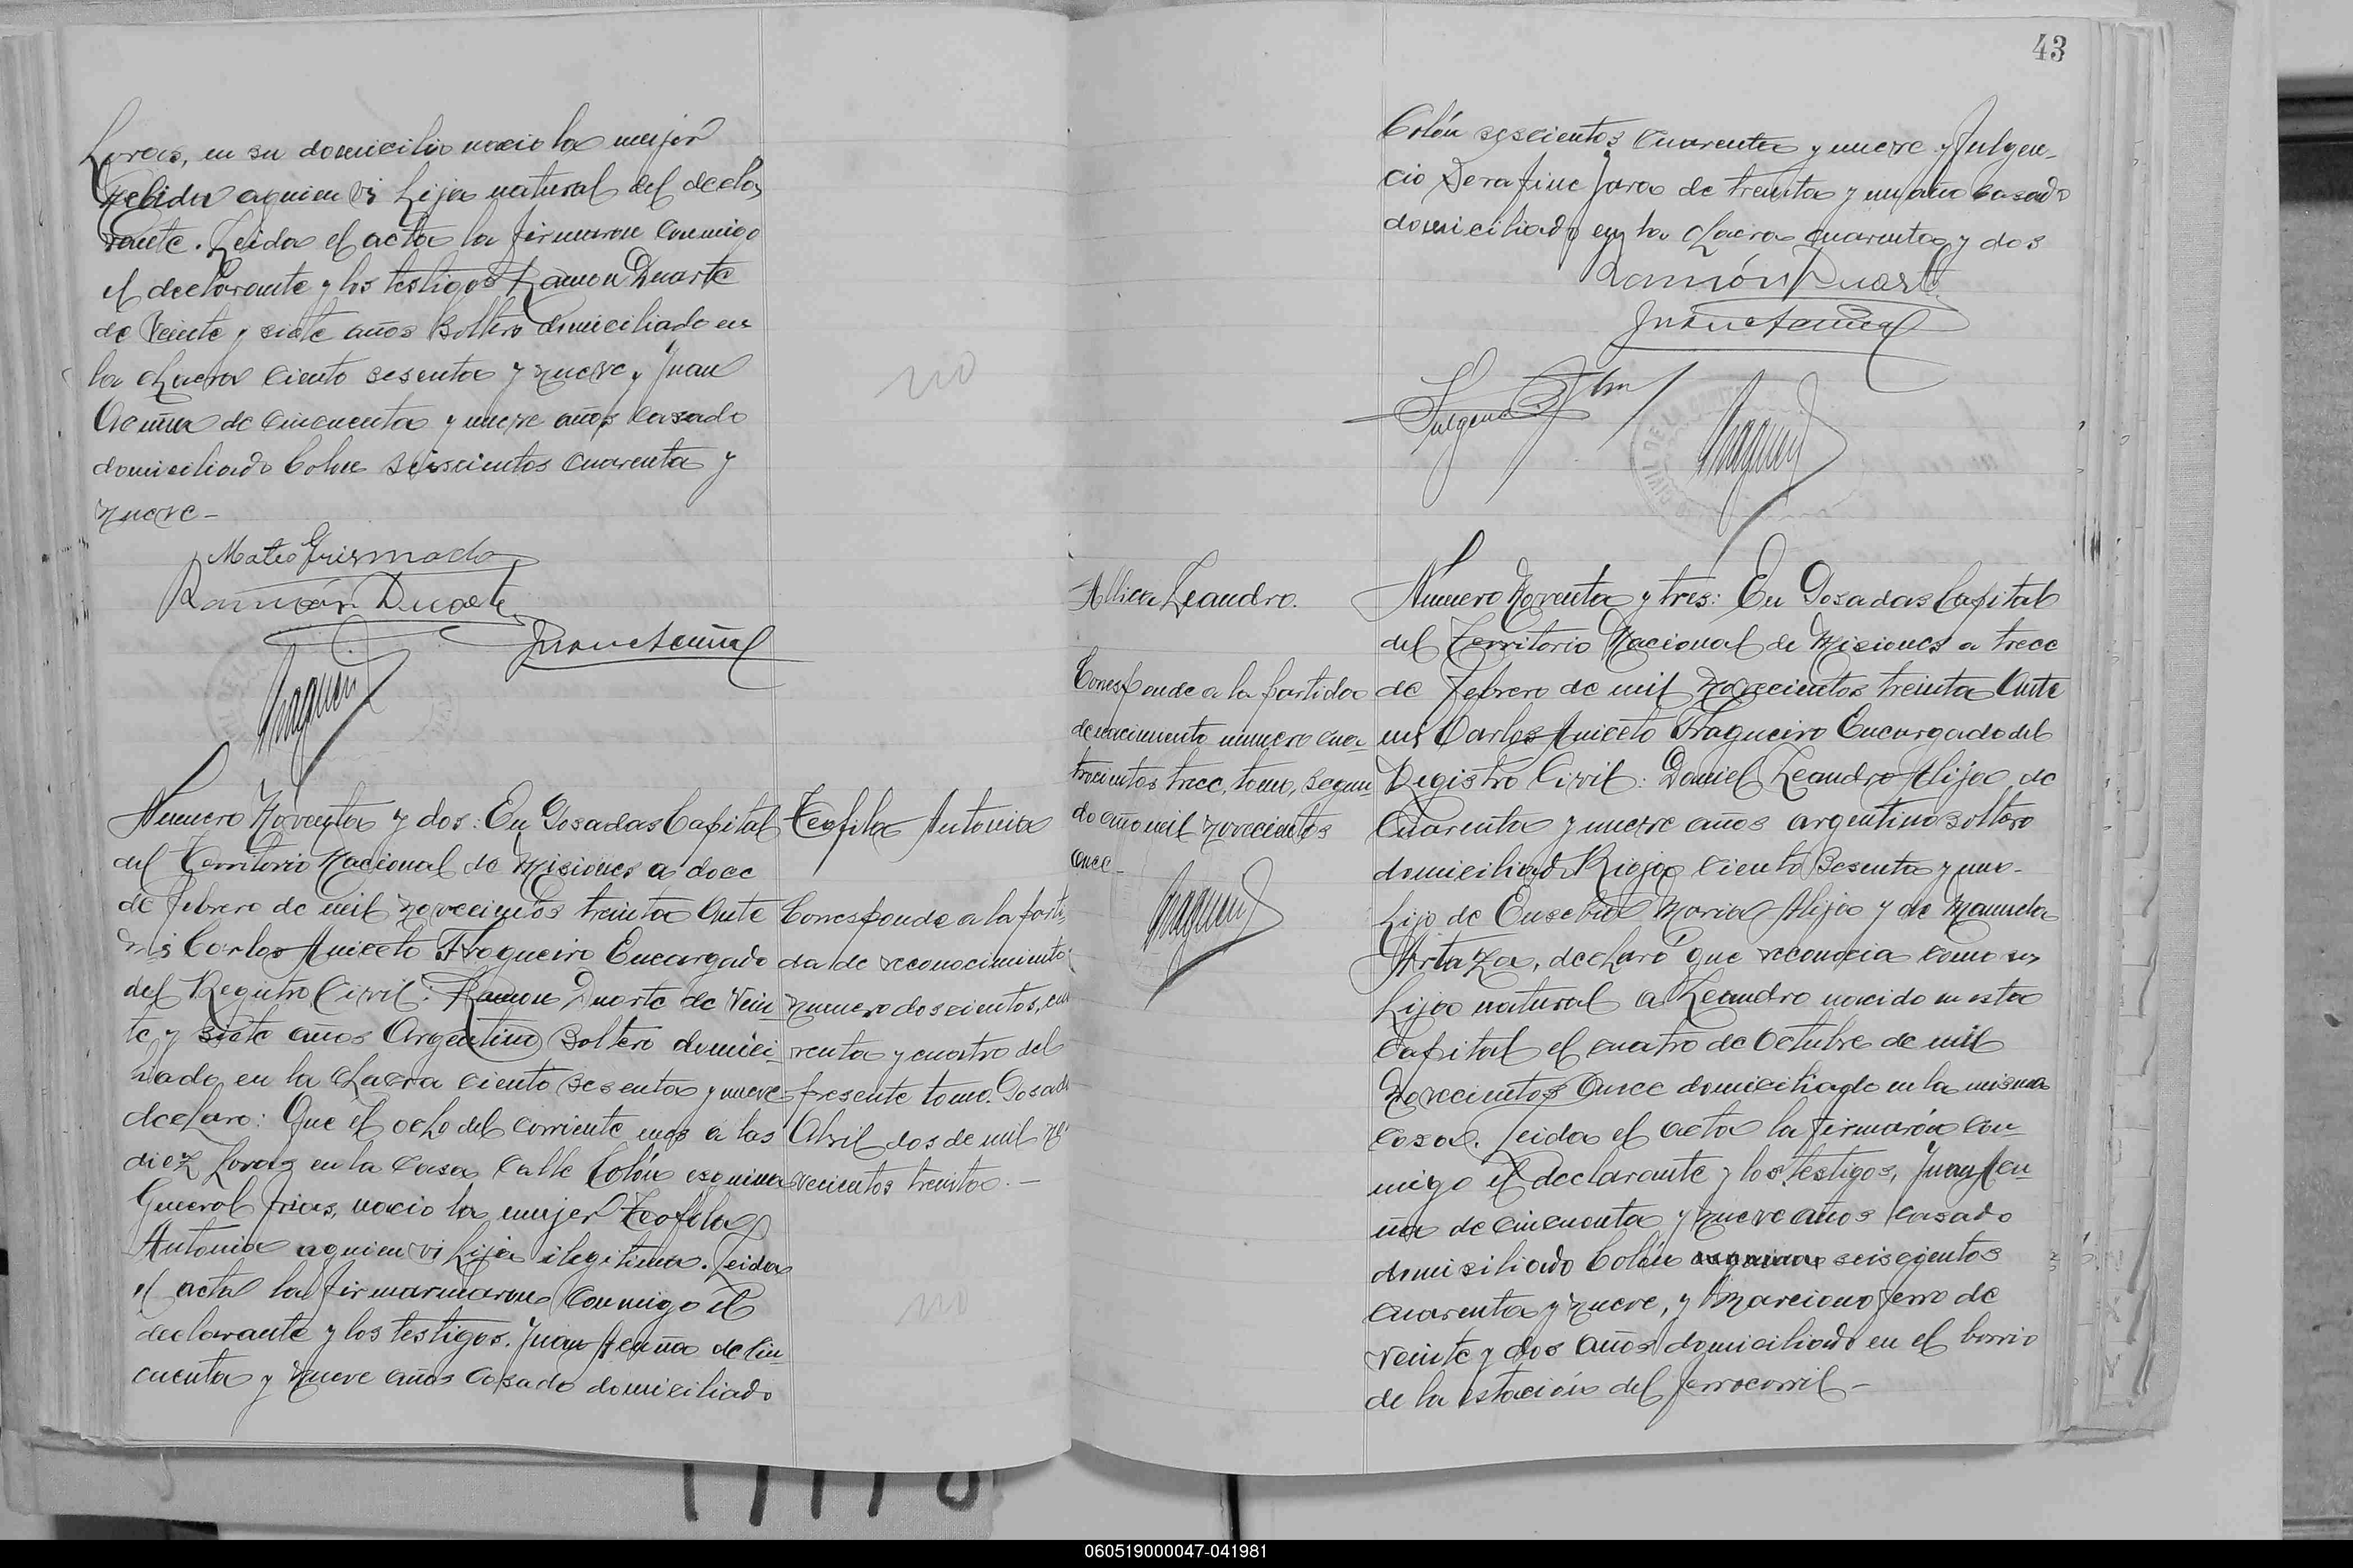 horas, en su domicilio nacio la mujer
Nelida aquien vi hija natural del decla,
rante. Leida el acta la firmaron conmigo
el declarante y los testigos Ramon Duarte
de veinte y siete años soltero domiciliado en
la chacra ciento sesenta y nueve y Juan
Acuña de cincuenta y nueve años casado
domiciliado Colon seiscientos cuarenta y
nueve-
Mateo Grismado
Ramón Duarte
Juan Acuña
Fragueiro
no
Numero Noventa y dos: En Posadas Capital
del Territorio Nacional de Misiones a doce
de febrero de mil novecientos treinta Ante
mi Carlos Aniceto Fragueiro Encargado
del Registro Civil: Ramon Duarte de Vein
te y siete anos Argentino soltero domici-
liado en la chacra ciento sesenta y nueve
declaro: Que el ocho del corriente mes a las
diez horas en la casa calle Colón esquina
General Frias, nacio la mujer Teofila
Antonia aquien vi hija ilegitima. Leida
el acta la firmarmaron conmigo el
declarante y los testigos. Juan Acuña de cin-
cuenta y nueve años casado domiciliado
Teofila Antonia
Corresponde a la parti-
da de reconocimiento
numero doscientos, cua
renta y cuatro del
presente tomo. Posadas
Abril dos de mil no
vecientos treinta.-
no
43
Colón sescientos cuarenta y nueve y Fulgen-
cio Serafine Jara de treinta y un año casado
domiciliado en la chacra cuarenta y dos
Ramón Duarte
Juan Acuña
Fulgencio
Fragueiro
Allica Leandro.
Corresponde a la partida
de nacimiento numero cua-
trocientos trece, tomo, segun-
do año mil novecientos
once-
Fragueiro
Numero Noventa y tres: En Posadas Capital
del Territorio Nacional de Misiones a trece
de febrero de mil novecientos treinta Ante
mi Carlos Aniceto Fragueiro Encargado del
Registro Civil: Daniel Leandro Alijo de
Cuarenta y nueve años argentino soltero
domiciliado Rioja ciento sesenta y uno-
hijo de Eusebio Maria Alijo y de Manuela
Artaza, declaró que reconocia como su
hijo natural a Leandro nacido en esta
Capital el cuatro de Octubre de mil
novecientos Once domiciliado en la misma
casa. Leida el acta la firmarón con-
migo el declarante y los testigos, Juan Acu-
ña de cincuenta y nueve años casado
domisiliado Colón esquina seiscientos
cuarenta y nueve, y Marciono Ferro de
veinte y dos años domiciliado en el barrio
de la estación del ferrocarril-
060519000047-041981